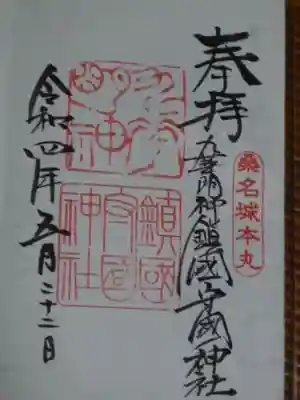 奉拝
桑名城本丸
九華明神鎮國守國神社
鎮國守國神社
令和四年五月二十二日